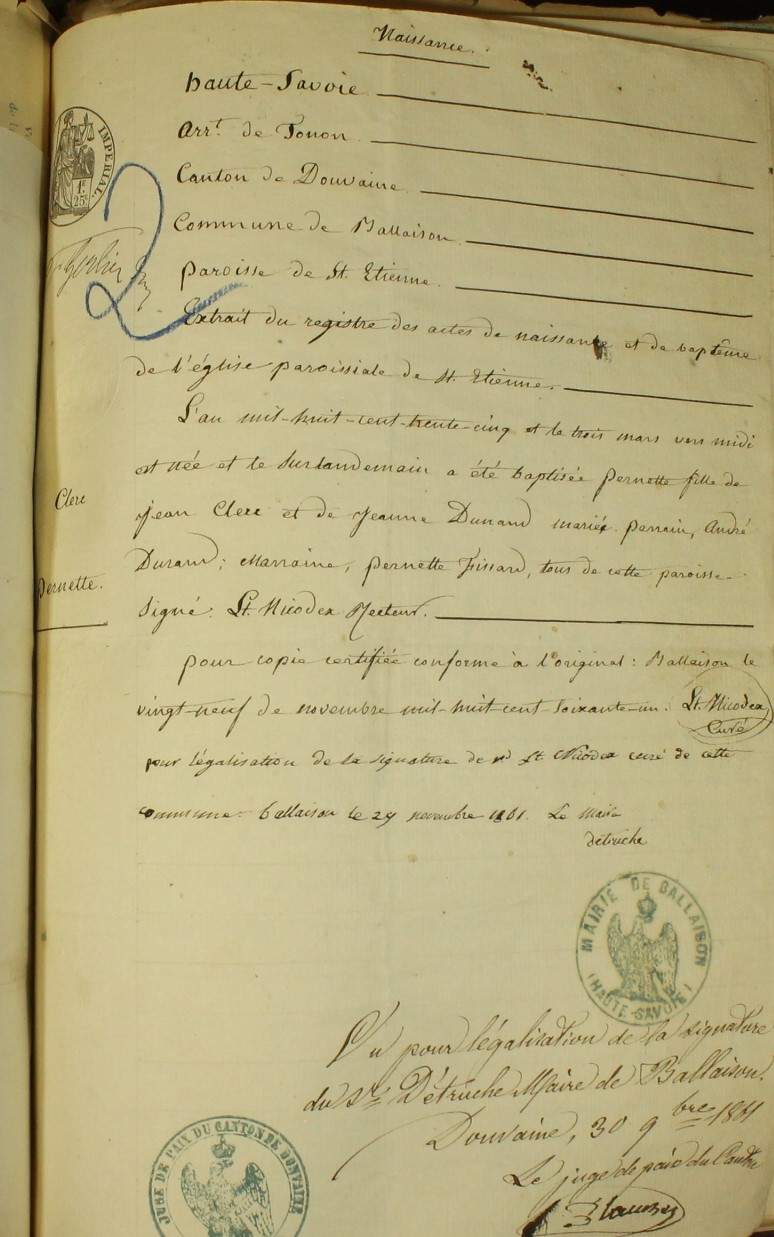 Naissance.
haute-Savoie
arr.t de Tonon
Canton de Douvaine
Commune de Ballaison
paroisse de St. Etienne.
IMPERIAL.
1F.
25C.
2
Extrait du registre des actes de naissance et de baptême
de l'église paroissiale de St. Etienne.
L'an mil-huit-cent-trente-cinq et le trois mars vers midi
est née et le surlendemain a été baptisée pernette fille de
Clerc
jean Clerc et de Jeanne Dunand mariés. parrain, André
Durand; Marraine, pernette Fissard, tous de cette paroisse
pernette.
Signé: St. Nicodex Recteur.
pour copie certifiée conforme à l'original: Ballaison le
vingt-neuf de novembre mil-huit-cent-soixante-un. St. Nicodex
Curé
pour légalisation de la signature de rd St Nicodex curé de cette
commune. ballaison le 29 novembre 1861. Le Maire
détruche
MAIRIE DE BALLAISON
(HAUTE-SAVOIE)
Vu pour légalisation de la signature
du Sr Détruche Maire de Ballaison.
Douvaine, 30 9bre 1861
Le juge de paix du Canton
JUGE DE PAIX DU CANTON DE DOUVAINE